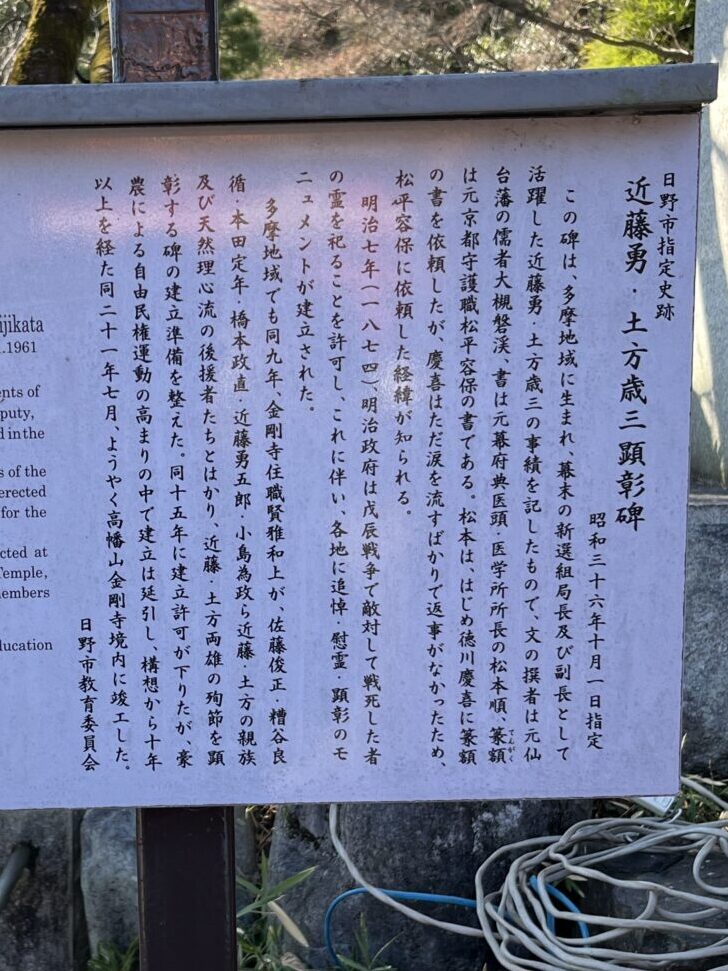 日野市指定史跡
近藤勇・土方歳三顕彰碑
昭和三十六年十月一日指定
この碑は、多摩地域に生まれ、幕末の新選組局長及び副長として
活躍した近藤勇・土方歳三の事績を記したもので、文の撰者は元仙
台藩の儒者大槻磐渓、書は元幕府典医頭・医学所所長の松本順、篆額
てんがく
は元京都守護職松平容保の書である。松本は、はじめ徳川慶喜に篆額
の書を依頼したが、慶喜はただ涙を流すばかりで返事がなかったため、
松平容保に依頼した経緯が知られる。
明治七年(一八七四)、明治政府は戊辰戦争で敵対して戦死した者
の霊を祀ることを許可し、これに伴い、各地に追悼・慰霊・顕彰のモ
ニュメントが建立された。
多摩地域でも同九年、金剛寺住職賢雅和上が、佐藤俊正・糟谷良
循・本田定年・橋本政直・近藤勇五郎・小島為政ら近藤・土方の親族
及び天然理心流の後援者たちとはかり、近藤・土方両雄の殉節を顕
彰する碑の建立準備を整えた。同十五年に建立許可が下りたが、豪
農による自由民権運動の高まりの中で建立は延引し、構想から十年
以上を経た同二十一年七月、ようやく高幡山金剛寺境内に竣工した。
日野市教育委員会
ijikata
.1961
ents of
puty,
d in the
s of the
erected
for the
cted at
Temple,
members
ducation